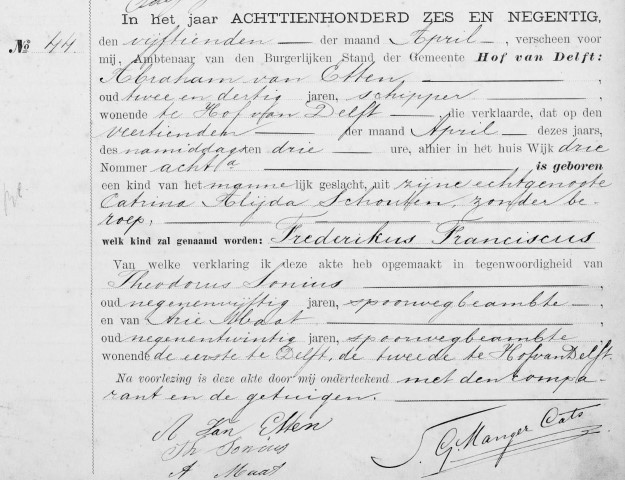 In het jaar ACHTTIENHONDERD ZES EN NEGENTIG,
No 44. den vijftienden der maand April, verscheen voor
mij, Ambtenaar van den Burgerlijken Stand der Gemeente Hof van Delft:
Abraham van Etten,
oud twee en dertig jaren, schipper
wonende te Hof van Delft die verklaarde, dat op den
veertienden der maand April dezes jaars,
des namiddags ten drie ure, alhier in het huis Wijk drie
Nommer acht a is geboren
een kind van het mannelijk geslacht, uit zijne echtgenoote
Catrina Alijda Schouten, zonder be-
roep,
welk kind zal genaamd worden: Frederikus Franciscus
Van welke verklaring ik deze akte heb opgemaakt in tegenwoordigheid van
Theodorus Sonius
oud negenenvijftig jaren, spoorwegbeambte,
en van Arie Maat,
oud negenentwintig jaren, spoorwegbeambte,
wonende de eerste te Delft, de tweede te Hof van Delft.
Na voorlezing is deze akte door mij onderteekend met den compa-
rant en de getuigen.
A Van Etten
Th Sonius
A Maat
G. Manger Cats